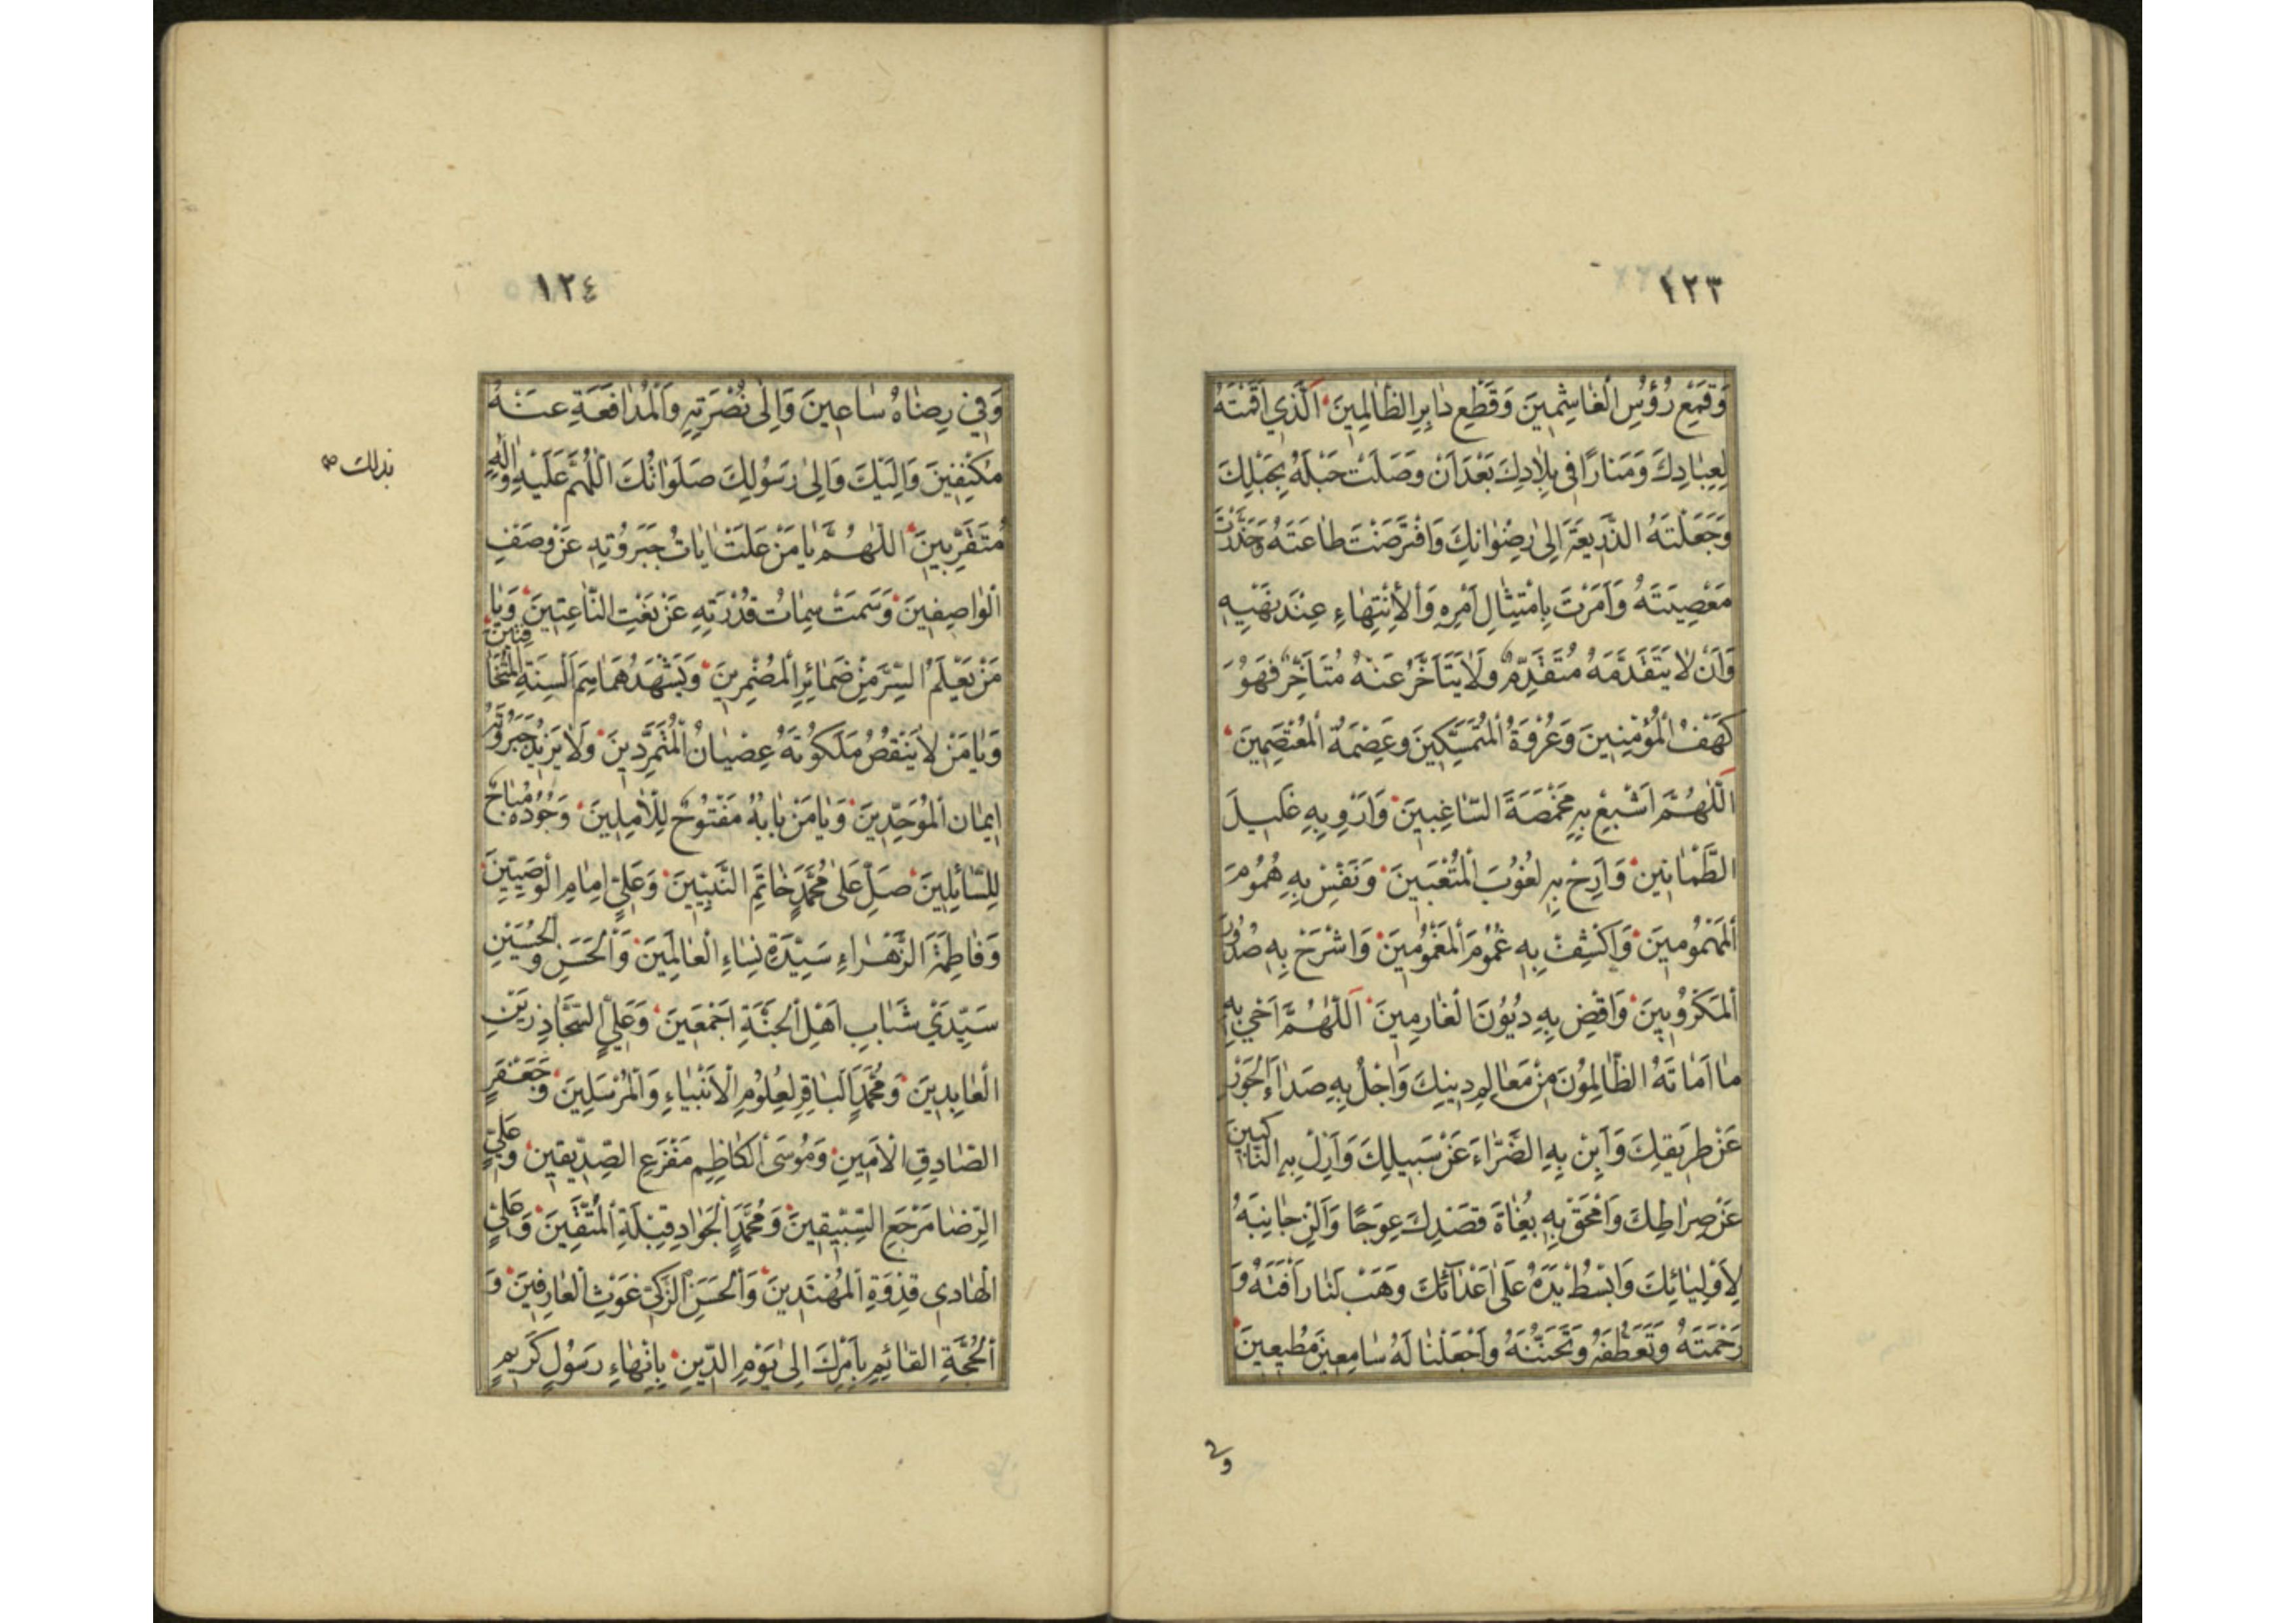 ١٢٣
وَقَمْعِ رُؤُسِ الْغَاشِمِينَ وَقَطْعِ دَابِرِ الظَّالِمِينَ اَلَّذِي اَقَمْتَهُ
لِعِبَادِكَ وَمَنَارًا فِى بِلَادِكَ بَعْدَ اَنْ وَصَلَتْ حَبْلَهُ بِحَبْلِكَ
وَجَعَلْتَهُ الذَّرِيعَةَ اِلىٰ رِضْوَانِكَ وَافْتَرَضْتَ طَاعَتَهُ وَحَذَّرْتَ
مَعْصِيَتَهُ وَاَمَرْتَ بِامْتِثَالِ اَمْرِهِ وَالْاِنْتِهَاءِ عِنْدَ نَهْيِهِ
وَاَنْ لَا يَتَقَدَّمَهُ مُتَقَدِّمٌ وَلَا يَتَاَخَّرُ عَنْهُ مُتَاَخِّرٌ فَهُوَ
كَهْفُ الْمُؤْمِنِينَ وَعُرْوَةُ الْمُتَمَسِّكِينَ وَعِصْمَةُ الْمُعْتَصِمِينَ
اَللّٰهُمَّ اَشْبِعْ بِهِ مَخْمَصَةَ السَّاغِبِينَ وَاَرْوِ بِهِ غَلِيلَ
الظَّمْاٰنِينَ وَاَرِحْ بِهِ لُغُوبَ الْمُتْعَبِينَ وَنَفِّسْ بِهِ هُمُومَ
الْمَهْمُومِينَ وَاكْشِفْ بِهِ غُمُومَ الْمَغْمُومِينَ وَاشْرَحْ بِهِ صُدُورَ
الْمَكْرُوبِينَ وَاقْضِ بِهِ دُيُونَ الْغَارِمِينَ اَللّٰهُمَّ اَحْيِ بِهِ
مَا اَمَاتَهُ الظَّالِمُونَ مِنْ مَعَالِمِ دِينِكَ وَاجْلُ بِهِ صَدَاءَ الْجَوْرِ
عَنْ طَرِيقِكَ وَاَبِنْ بِهِ الضَّرَّاءَ عَنْ سَبِيلِكَ وَاَزِلْ بِهِ النَّاكِبِينَ
عَنْ صِرَاطِكَ وَامْحَقْ بِهِ بُغَاةَ قَصْدِكَ عِوَجًا وَاَلِنْ جَانِبَهُ
لِاَوْلِيَائِكَ وَابْسُطْ يَدَهُ عَلىٰ اَعْدَائِكَ وَهَبْ لَنَا رَاْفَتَهُ وَ
رَحْمَتَهُ وَتَعَطُّفَهُ وَتَحَنُّنَهُ وَاجْعَلْنَا لَهُ سَامِعِينَ مُطِيعِينَ
١٢٤
وَفِي رِضَاهُ سَاعِينَ وَاِلىٰ نُصْرَتِهِ وَالْمُدَافَعَةِ عَنْهُ
مُكْنِفِينَ وَاِلَيْكَ وَاِلىٰ رَسُولِكَ صَلَوَاتُكَ اللّٰهُمَّ عَلَيْهِ وَاٰلِهِ
بذلك
مُتَقَرِّبِينَ اَللّٰهُمَّ يَا مَنْ عَلَتْ اٰيَاتُ جَبَرُوتِهِ عَنْ وَصْفِ
الْوَاصِفِينَ وَسَمَتْ سِمَاتُ قُدْرَتِهِ عَنْ نَعْتِ النَّاعِتِينَ وَيَا
مَنْ يَعْلَمُ السِّرَّ مِنْ ضَمَائِرِ الْمُضْمِرِينَ وَيَشْهَدُ هَمَاسِمَ اَلْسِنَةِ الْمُتَخَافِتِينَ
وَيَا مَنْ لَا يَنْقُصُ مَلَكُوتَهُ عِصْيَانُ الْمُتَمَرِّدِينَ وَلَا يَزِيدُ جَبَرُوتَهُ
اِيمَانُ الْمُوَحِّدِينَ وَيَا مَنْ بَابُهُ مَفْتُوحٌ لِلْاٰمِلِينَ وَجُودُهُ مُبَاحٌ
لِلسَّائِلِينَ صَلِّ عَلىٰ مُحَمَّدٍ خَاتَمِ النَّبِيِّينَ وَعَلِيٍّ اِمَامِ الْوَصِيِّينَ
وَفَاطِمَةَ الزَّهْرَاءِ سَيِّدَةِ نِسَاءِ الْعَالَمِينَ وَالْحَسَنِ وَالْحُسَيْنِ
سَيِّدَيْ شَبَابِ اَهْلِ الْجَنَّةِ اَجْمَعِينَ وَعَلِيٍّ السَّجَّادِ زَيْنِ
الْعَابِدِينَ وَمُحَمَّدٍ الْبَاقِرِ لِعُلُومِ الْاَنْبِيَاءِ وَالْمُرْسَلِينَ وَجَعْفَرٍ
الصَّادِقِ الْاَمِينِ وَمُوسَى الْكَاظِمِ مَفْزَعِ الصِّدِّيقِينَ وَعَلِيٍّ
الرِّضَا مَرْجَعِ السَّبِيقِينَ وَمُحَمَّدٍ الْجَوَادِ قِبْلَةِ الْمُتَّقِينَ وَعَلِيٍّ
الْهَادِي قِدْوَةِ الْمُهْتَدِينَ وَالْحَسَنِ الزَّكِيِّ غَوْثِ الْعَارِفِينَ وَ
الْحُجَّةِ الْقَائِمِ بِاَمْرِكَ اِلىٰ يَوْمِ الدِّينِ بِاِنْهَاءِ رَسُولٍ كَرِيمٍ